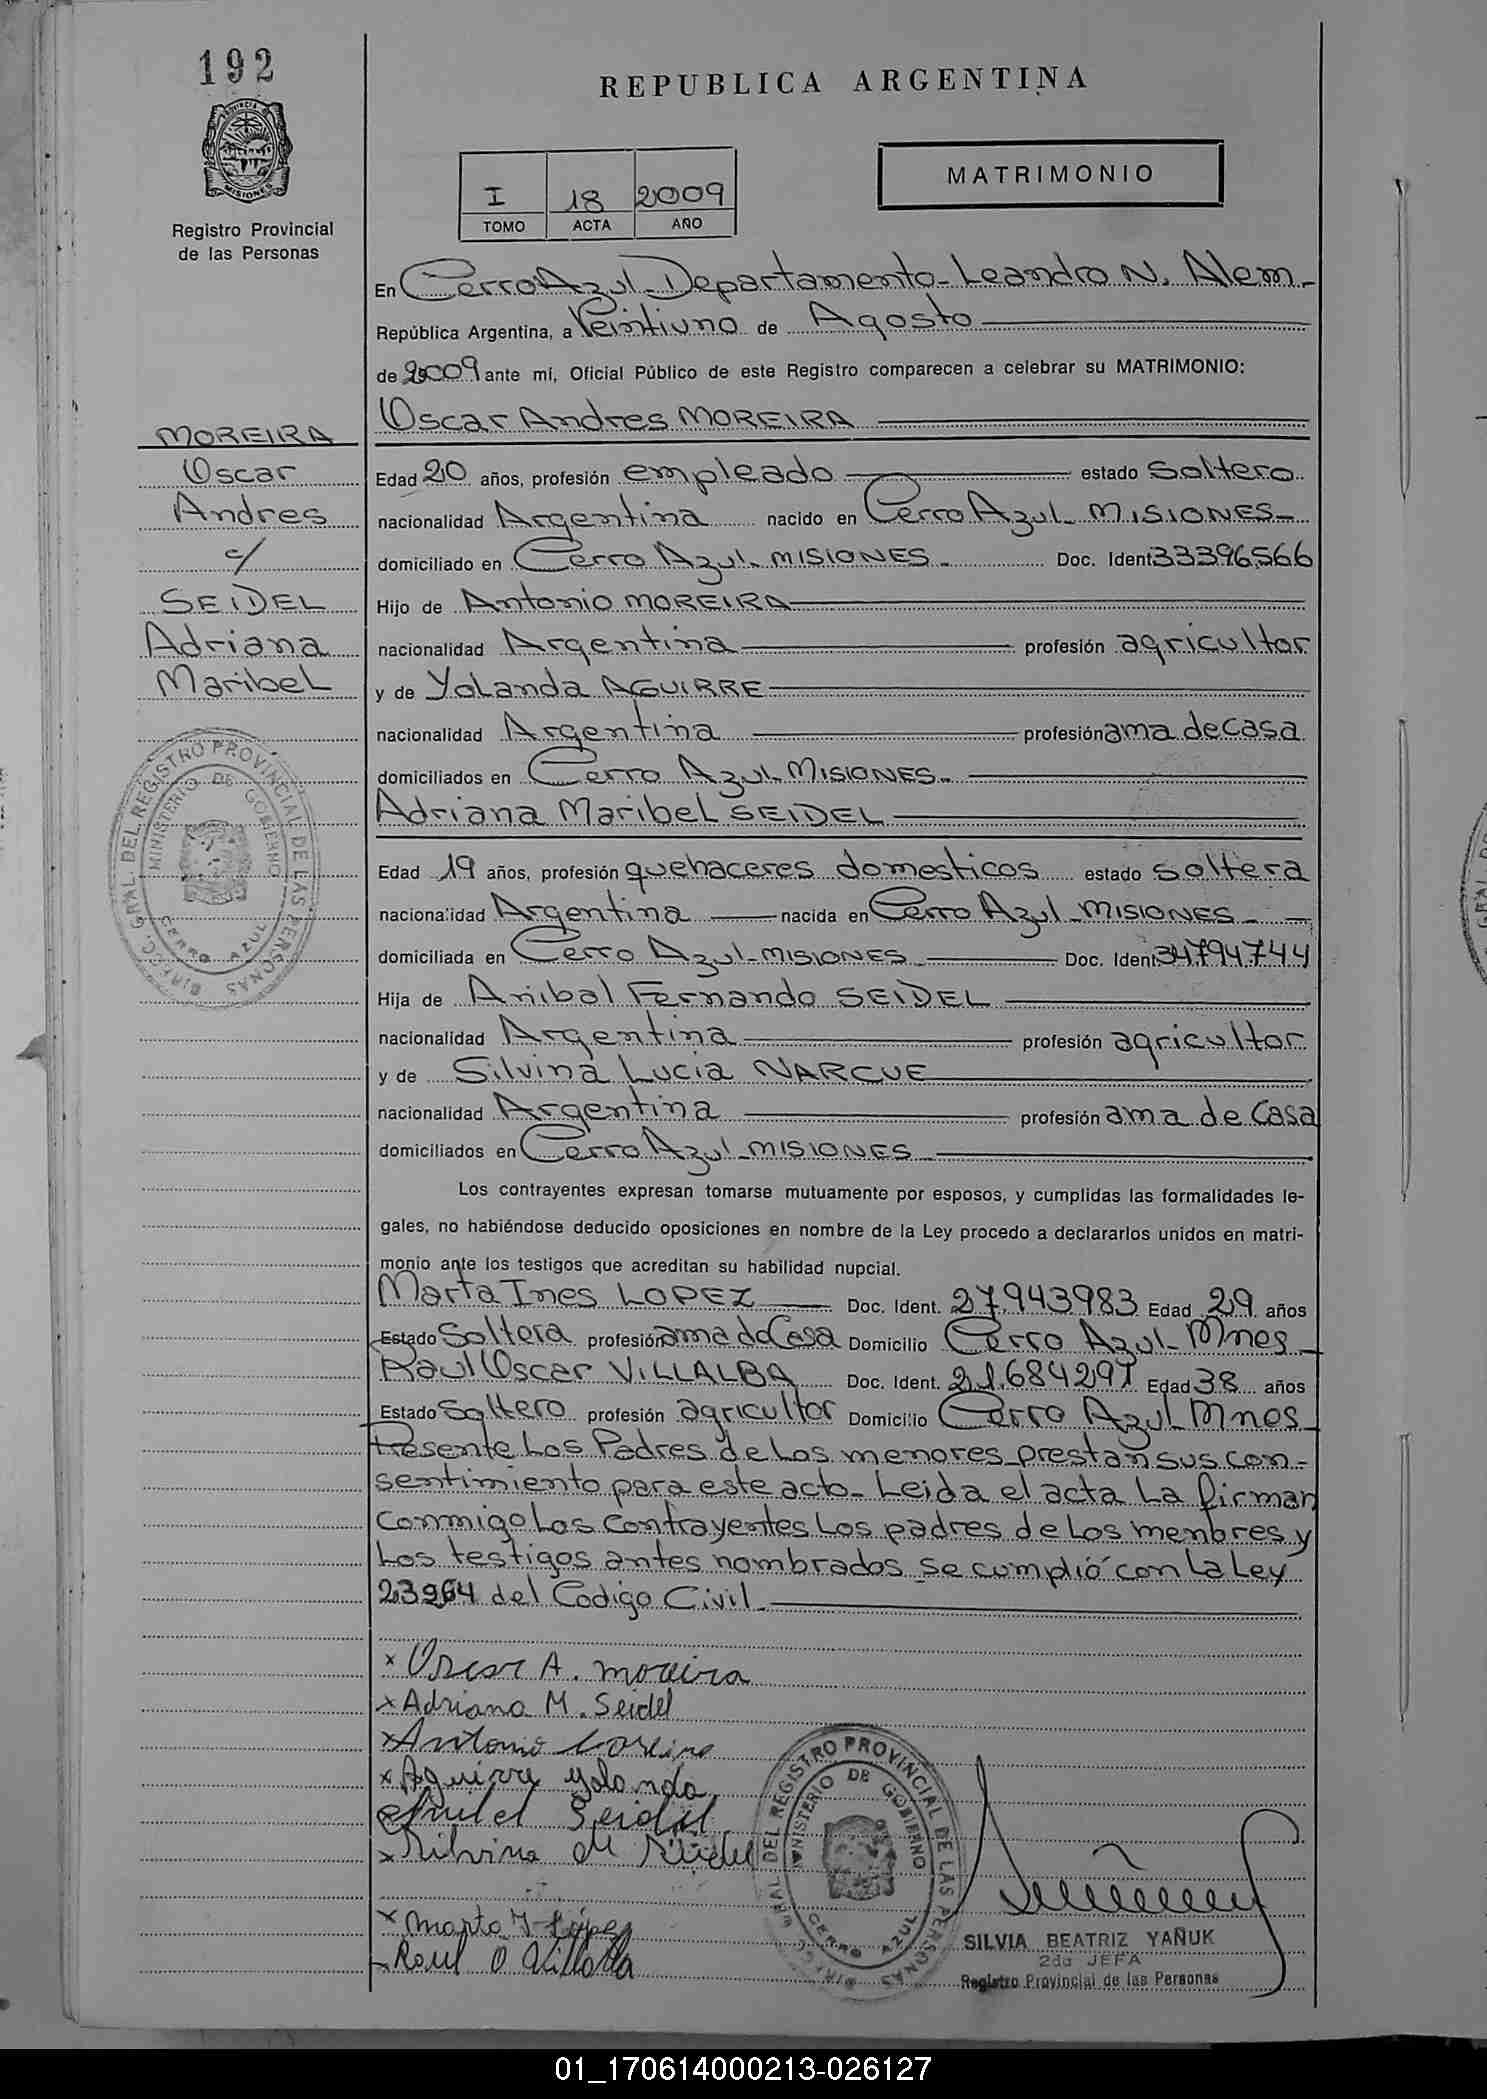 192
REPUBLICA ARGENTINA
PROVINCIA DE MISIONES
Registro Provincial
de las Personas
I 18 2009
TOMO ACTA AÑO
MATRIMONIO
En Cerro Azul-Departamento-Leandro N. Alem-
República Argentina, a Veintiuno de Agosto
de 2009 ante mí, Oficial Público de este Registro comparecen a celebrar su MATRIMONIO:
Oscar Andres MOREIRA
MOREIRA
Oscar
Andres
c/
SEIDEL
Adriana
Maribel
Edad 20 años, profesión empleado estado Soltero
nacionalidad Argentina nacido en Cerro Azul-MISIONES-
domiciliado en Cerro Azul-MISIONES- Doc. Ident 33396.566
Hijo de Antonio MOREIRA
nacionalidad Argentina profesión agricultor
y de Yolanda AGUIRRE
nacionalidad Argentina profesión ama de casa
domiciliados en Cerro Azul-MISIONES-
Adriana Maribel SEIDEL
Edad 19 años, profesión quehaceres domesticos estado soltera
nacionalidad Argentina nacida en Cerro Azul-MISIONES-
domiciliada en Cerro Azul-MISIONES Doc. Ident 34794744
Hija de Anibal Fernando SEIDEL
nacionalidad Argentina profesión agricultor
y de Silvina Lucia NARCUE
nacionalidad Argentina profesión ama de casa
domiciliados en Cerro Azul-MISIONES
Los contrayentes expresan tomarse mutuamente por esposos, y cumplidas las formalidades le-
gales, no habiéndose deducido oposiciones en nombre de la Ley procedo a declararlos unidos en matri-
monio ante los testigos que acreditan su habilidad nupcial.
Marta Ines LOPEZ Doc. Ident. 27.943983 Edad 29 años
Estado Soltera profesión ama de Casa Domicilio Cerro Azul-Mnes-
Raul Oscar VILLALBA Doc. Ident. 21.684297 Edad 38 años
Estado Soltero profesión agricultor Domicilio Cerro Azul-Mnes-
Presente Los Padres de Los menores prestan sus con-
sentimiento para este acto-Leida el acta La firman
conmigo Los contrayentes Los padres de Los menores y
Los testigos antes nombrados se cumplió con La Ley
del Codigo Civil-
x Oscar A. moreira
x Adriana M. Seidel
x Antonio Moreira
x Aguirre yolanda
Seidel
x Silvina Seidel
x marta I López
x Raul O Villalba
DIREC. GRAL. DEL REGISTRO PROVINCIAL DE LAS PERSONAS
MINISTERIO DE GOBIERNO
CERRO AZUL
DIREC. GRAL. DEL REGISTRO PROVINCIAL DE LAS PERSONAS
MINISTERIO DE GOBIERNO
CERRO AZUL
SILVIA BEATRIZ YAÑUK
2da JEFA
Registro Provincial de las Personas
01_170614000213-026127